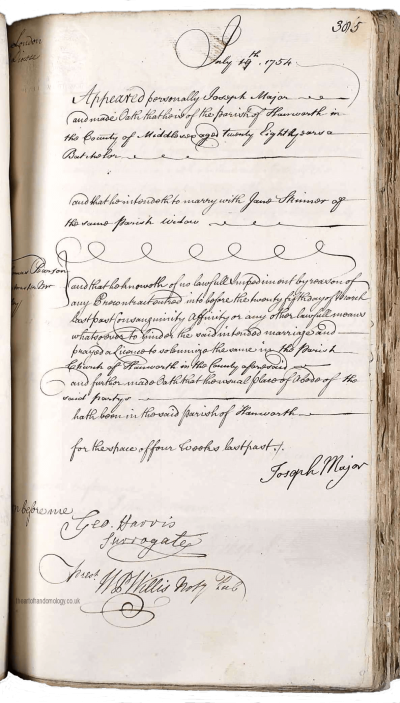 385
London
July 19th. 1754
Appeared personally Joseph Major
and made Oath that he is of the parish of Hanworth in
the County of Middlesex aged twenty Eight years a
Batchelor
and that he intendeth to marry with Jane Skinner of
the same Parish Widow
Pearson
and that he knoweth of no lawfull Impediment by reason of
any Precontract entred into before the twenty fifth day of March
last past Consanguinity Affinity or any other lawfull means
whatsoever to hinder the said intended marriage and
prayed a Licence to solemnize the same in the Parish
Church of Hanworth in the County aforesaid
and further made Oath that the usual place of Abode of the
said partys
hath been in the said Parish of Hanworth
for the space of four Weeks last past.
Joseph Major
before me
Geo. Harris
Surrogate
Prest
Willis Notry Pub
theartofrandomology.co.uk